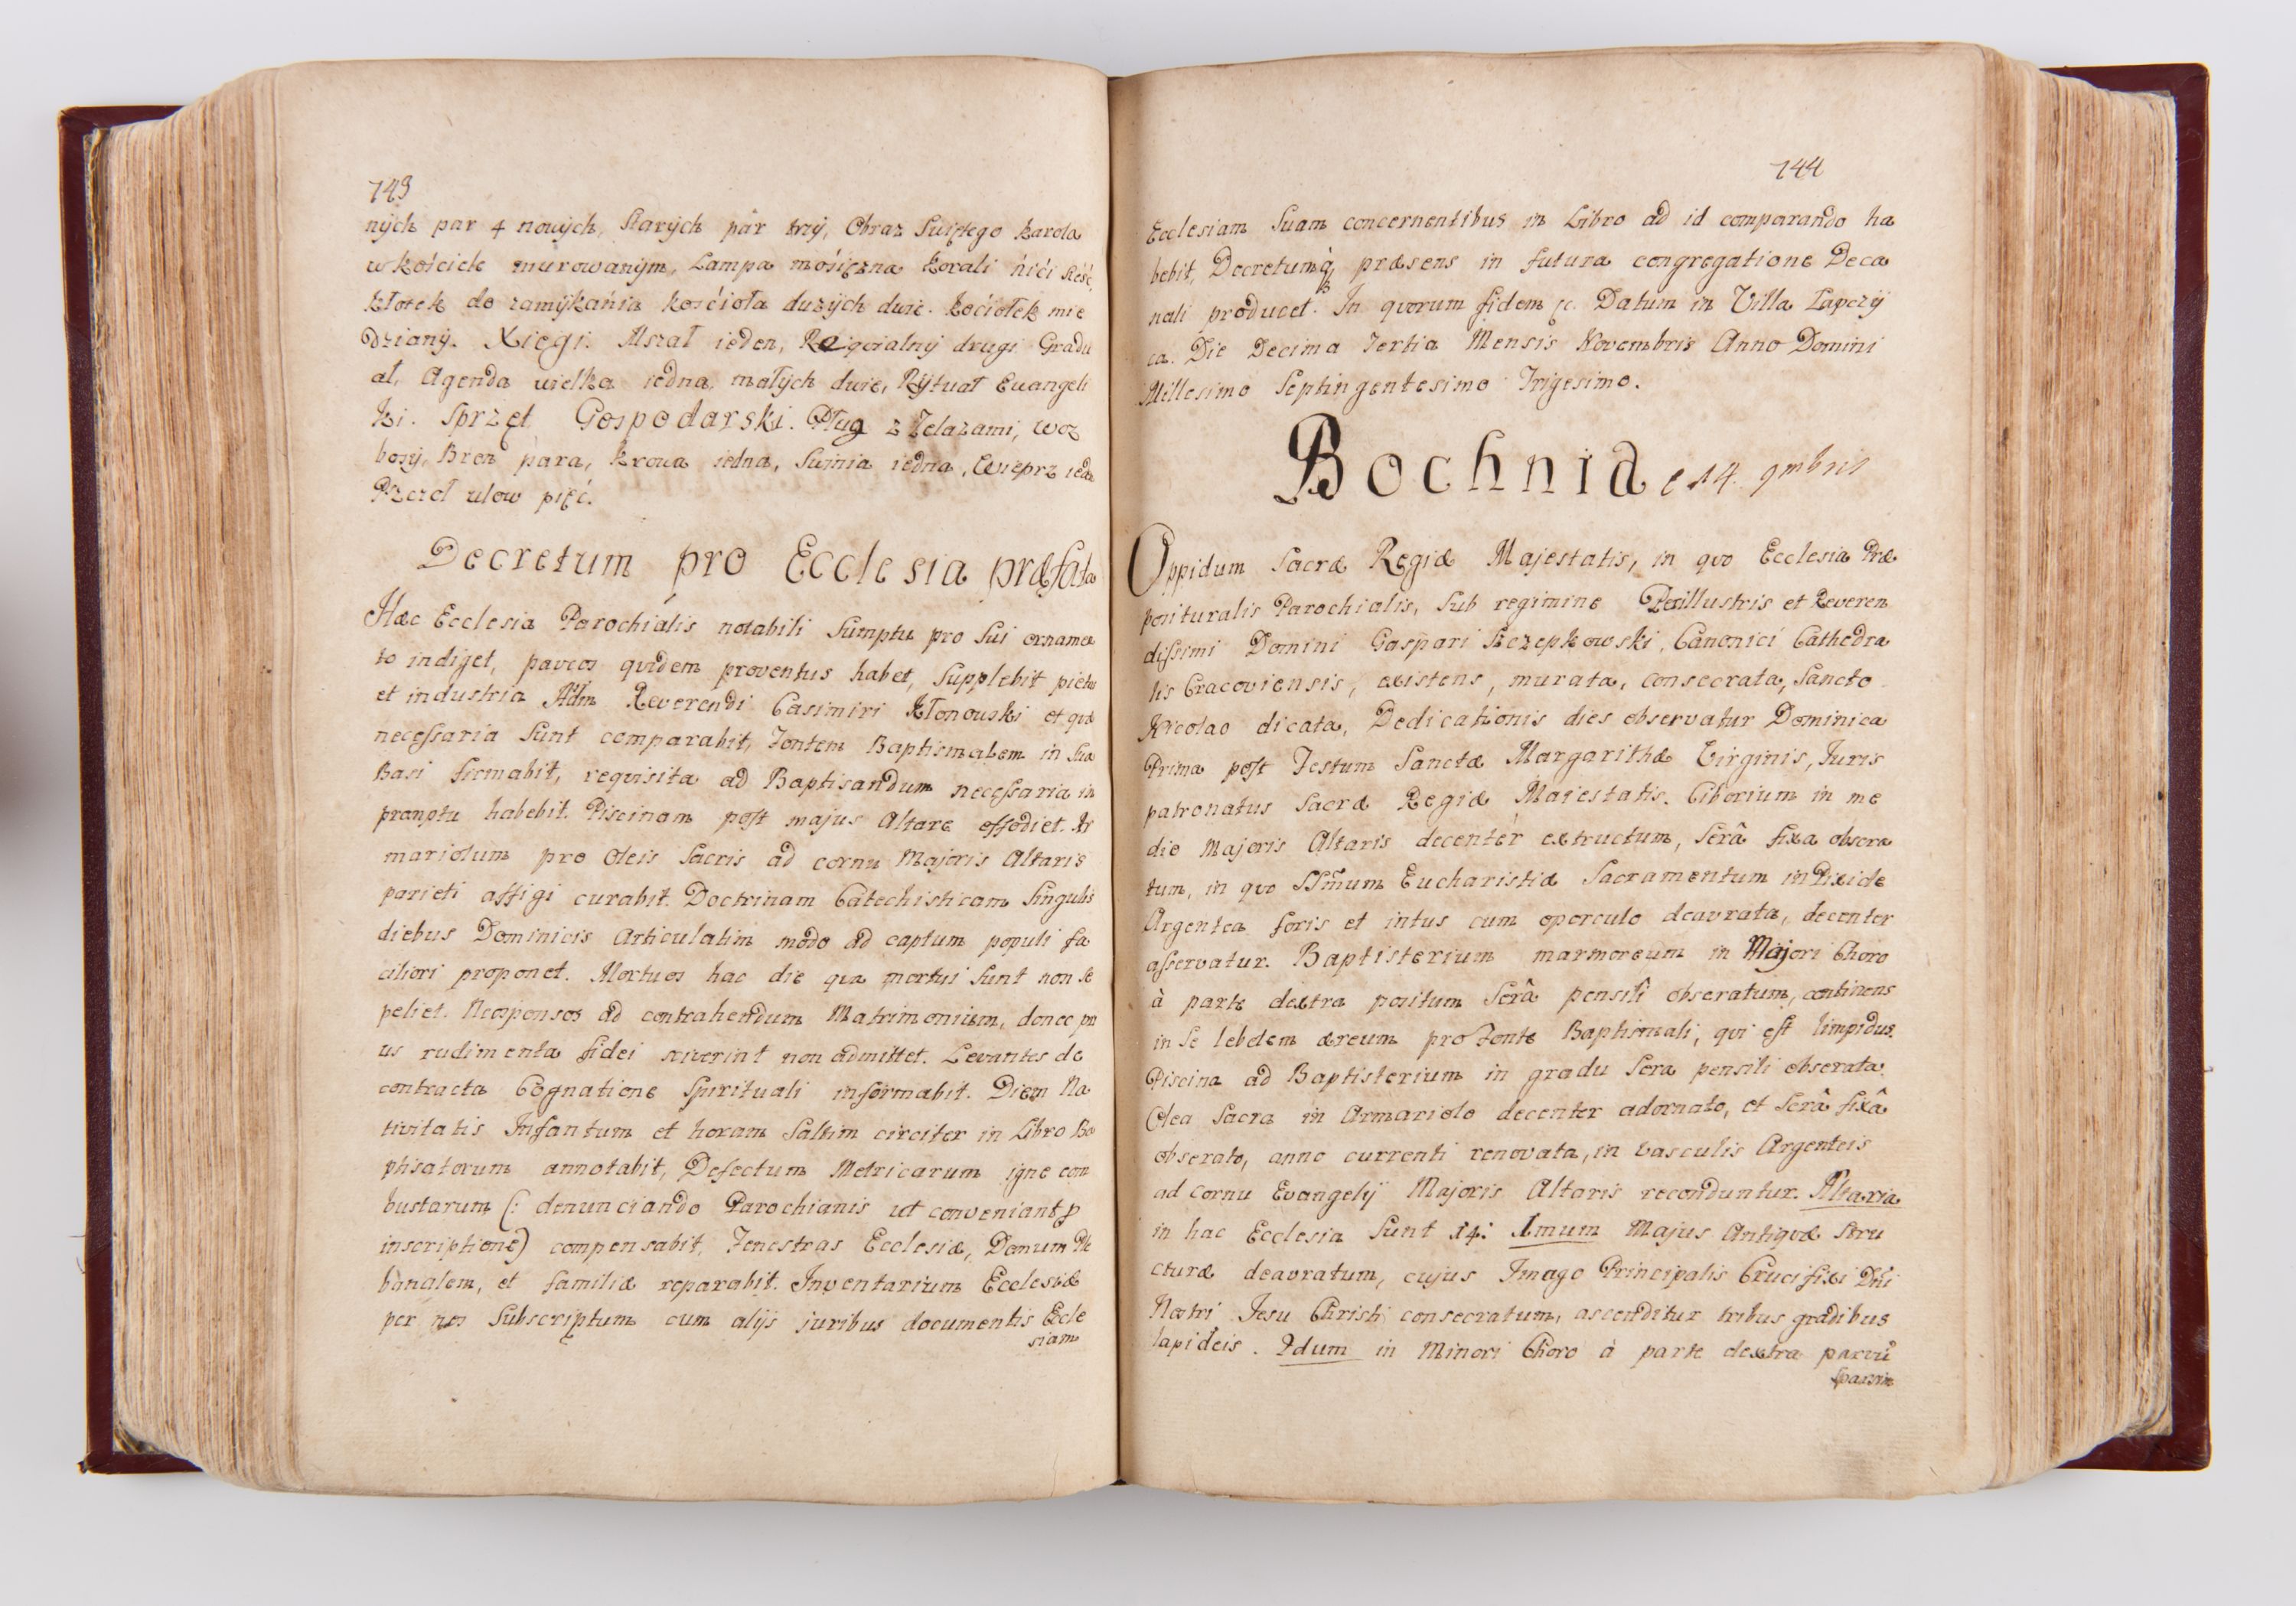 743
nych par 4 nowych, Starych pàr trzy, Obraz Swiętego Karola
w kościele murowanym, Lampa mosiężna Korali nići sześć,
kłotek do zamykańia kośćioła duzych dwie. Kociołek mie
dziany. Xięgi. Mszał ieden, Reqvialny drugi Gradu
ał, Agenda wielka iedna, małych dwie, Rytuał Ewangeli
ki. Sprzęt Gospodarski. Pług z Żelazami, woz
bosy, Bron para, krowa iedna, Swinia iedna, Wieprz ieden
Pszczoł ulow pięć.
Decretum pro Ecclesia præfata
Hæc Ecclesia Parochialis notabili Sumptu pro Sui ornamen
to indiget, paucos quidem proventus habet, Supplebit pietas
et industria Adm Reverendi Casimiri Kłonowski et quæ
necessaria Sunt comparabit, Fontem Baptismalem in Sua
Basi firmabit, requisita ad Baptisandum necessaria in
promptu habebit. Piscinam post majus Altare effodiet. Ar
mariolum pro Oleis Sacris ad cornu Majoris Altaris
parieti affigi curabit. Doctrinam Catechisticam Singulis
diebus Dominicis Articulatim modo ad captum populi fa
ciliori proponet. Mortuos hac die qua mortui Sunt non Se
peliet. Neosponsos ad contrahendum Matrimonium, donec pri
us rudimenta fidei sciverint non admittet. Levantes de
contracta Cognatione Spirituali informabit. Diem Na
tivitatis Infantum et horam Saltim circiter in Libro Ba
ptisatorum annotabit, Defectum Metricarum igne com
bustarum (: denunciando Parochianis ut conveniant p
inscriptione) compensabit, Fenestras Ecclesiæ, Domum Ple
banalem, et familiæ reparabit. Inventarium Ecclesiæ
per nos Subscriptum cum alijs juribus documentis Eccle
siam
744
Ecclesiam Suam concernentibus in Libro ad id comparando ha
bebit, Decretumq præsens in futura congregatione Deca
nali producet. In quorum fidem &c. Datum in Villa Łapczy
ca. Die Decima Tertia Mensis Novembris Anno Domini
Millesimo Septingentesimo Trigesimo.
Bochnia e 14. 9mbris
Oppidum Sacræ Regiæ Majestatis, in quo Ecclesia Præ
posituralis Parochialis, Sub regimine Perillustris et Reveren
dissimi Domini Gaspari Szczepkowski, Canonici Cathedra
lis Cracoviensis, existens, murata, consecrata, Sancto
Nicolao dicata, Dedicationis dies observatur Dominica
Prima post Festum Sanctæ Margarithæ Virginis, Juris
patronatus Sacræ Regiæ Maiestatis. Ciborium in me
dio Majoris Altaris decentèr extructum, Serâ fixa obsera
tum, in quo SSmum Eucharistiæ Sacramentum in Pixide
Argentea foris et intus cum operculo deaurata, decenter
asservatur. Baptisterium marmoreum in Majori Choro
à parte dextra positum Serâ pensili obseratum, continens
in Se lebetem æreum pro Fonte Baptismali, qui est limpidus.
Piscina ad Baptisterium in gradu Sera pensili obserata.
Olea Sacra in Armariolo decenter adornato, et Serâ fixâ
obserato, anno currenti renovata, in vasculis Argenteis
ad Cornu Evangelij Majoris Altaris reconduntur. Altaria
in hac Ecclesia Sunt 14: Imum Majus Antiquæ Stru
cturæ deauratum, cujus Imago Principalis Crucifixi Dni
Nostri Jesu Christi consecratum, ascenditur tribus gradibus
lapideis. 2dum in Minori Choro à parte dextra parvũ